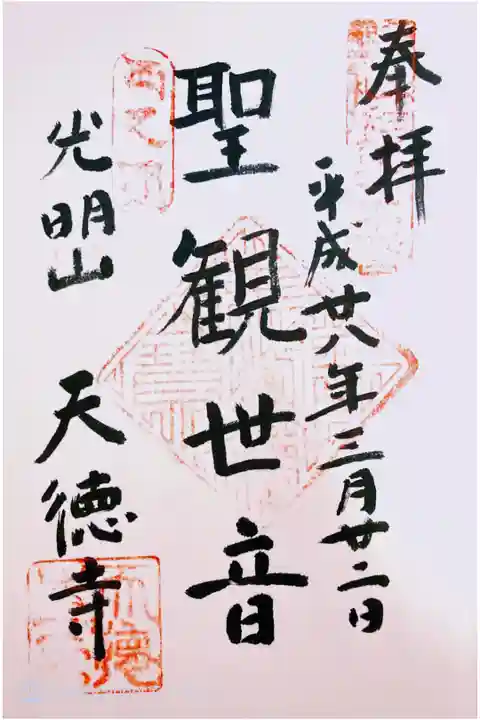 奉拝
平成廿八年三月廿二日
聖観世音
光明山
天徳寺